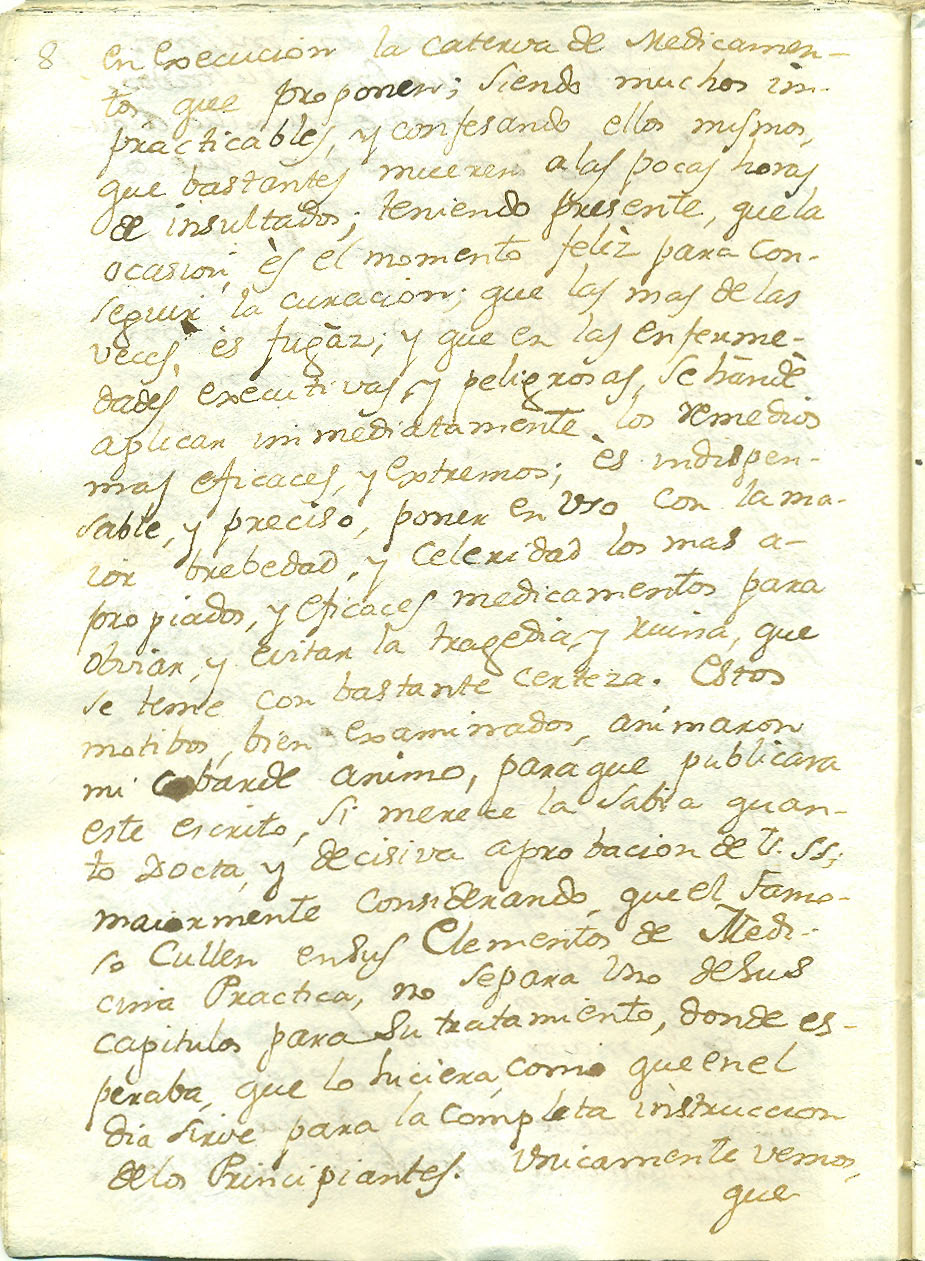 8 en execucion la caterva de Medicamen-
tos que proponen; siendo muchos im-
practicables, y confesando ellos mismos,
que bastantes mueren a las pocas horas
de insultados; teniendo presente, que la
ocasion, ès el momento felìz para con-
seguir la curacion; que las mas de las
veces, ès fugàz; y que en las enferme-
dades executivas, y peligrosas, se hande
aplicar immediatamente los remedios
mas eficaces, y extremos; ès indispen-
sable, y preciso, poner en uso con la ma-
ior brebedad, y celeridad los mas a-
propiados, y eficaces medicamentos para
obviar, y evitar la tragedia, y ruina, que
se teme con bastante certeza. Estos
motibos, bien examinados, animaron
mi cobarde animo, paraque publicara
este escrito, si merece la sabia quan-
to Docta, y decisiva aprobacion de V. SS;
maiormente considerando, que el famo-
so Cullen en sus Elementos de Medi-
cina Practica, no separa uno de sus
capitulos para su tratamiento, donde es-
peraba, que lo hiciera, como que en el
dia sirve para la completa instruccion
de los Principiantes. Unicamente vemos,
que